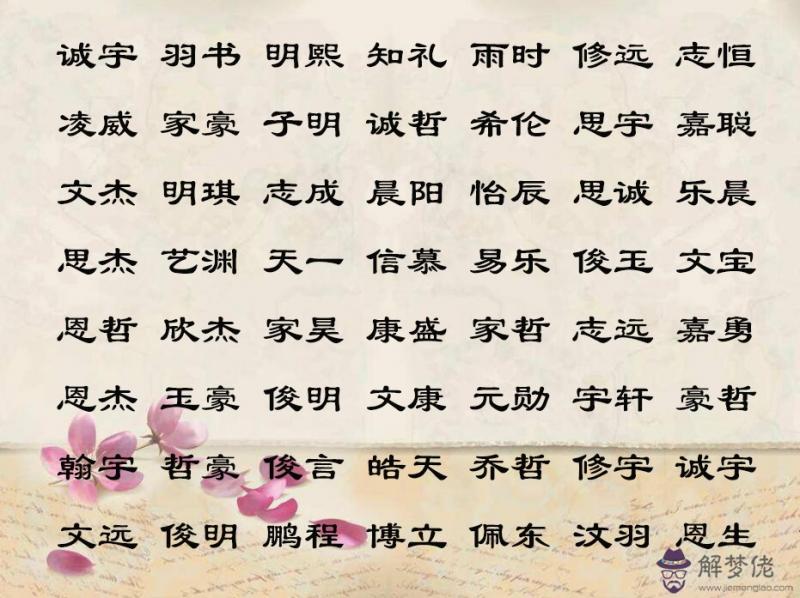 诚宇 羽书 明熙 知礼 雨时 修远 志恒
凌威 家豪 子明 诚哲 希伦 思宇 嘉聪
文杰 明琪 志成 晨阳 怡辰 思诚 乐晨
思杰 艺渊 天一 信慕 易乐 俊玉 文宝
恩哲 欣杰 家昊 康盛 家哲 志远 嘉勇
恩杰 玉豪 俊明 文康 元勋 宇轩 豪哲
翰宇 哲豪 俊言 皓天 乔哲 修宇 诚宇
文远 俊明 鹏程 博立 佩东 汶羽 恩生
解梦佬
www.jiemenglao.com